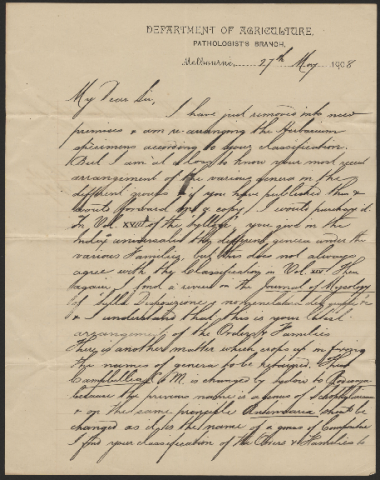 DEPARTMENT OF AGRICULTURE.
PATHOLOGIST'S BRANCH,
Melbourne, 27th May 1908
My Dear Sir,
I have just removed into new
premises & am re-arranging the Herbarium
specimens according to your classification.
But I am at a loss to know your most recent
arrangement of the various genera in the
different groups & if you have published this &
would forward me a copy, I would purchase it.
In Vol. of the Sylloge, you give in the
Index universalis the different genera under the
various Families, but this does not always
agree with the Classification in Vol. XIV. Then
again, I find a review in the Journal of Mycology
of sulla Disposizione e nomenclatura dei
& I understand that this is your latest
arrangement of the Orders & Families
There is another matter which crops up in fixing
the names of genera to be retained. Thus
is changed by to
because the previous name is a genus of
& on the same principle Antennaria should be
changed as it is the name of a genus of Compositae
I find your classification of the Orders & Families to